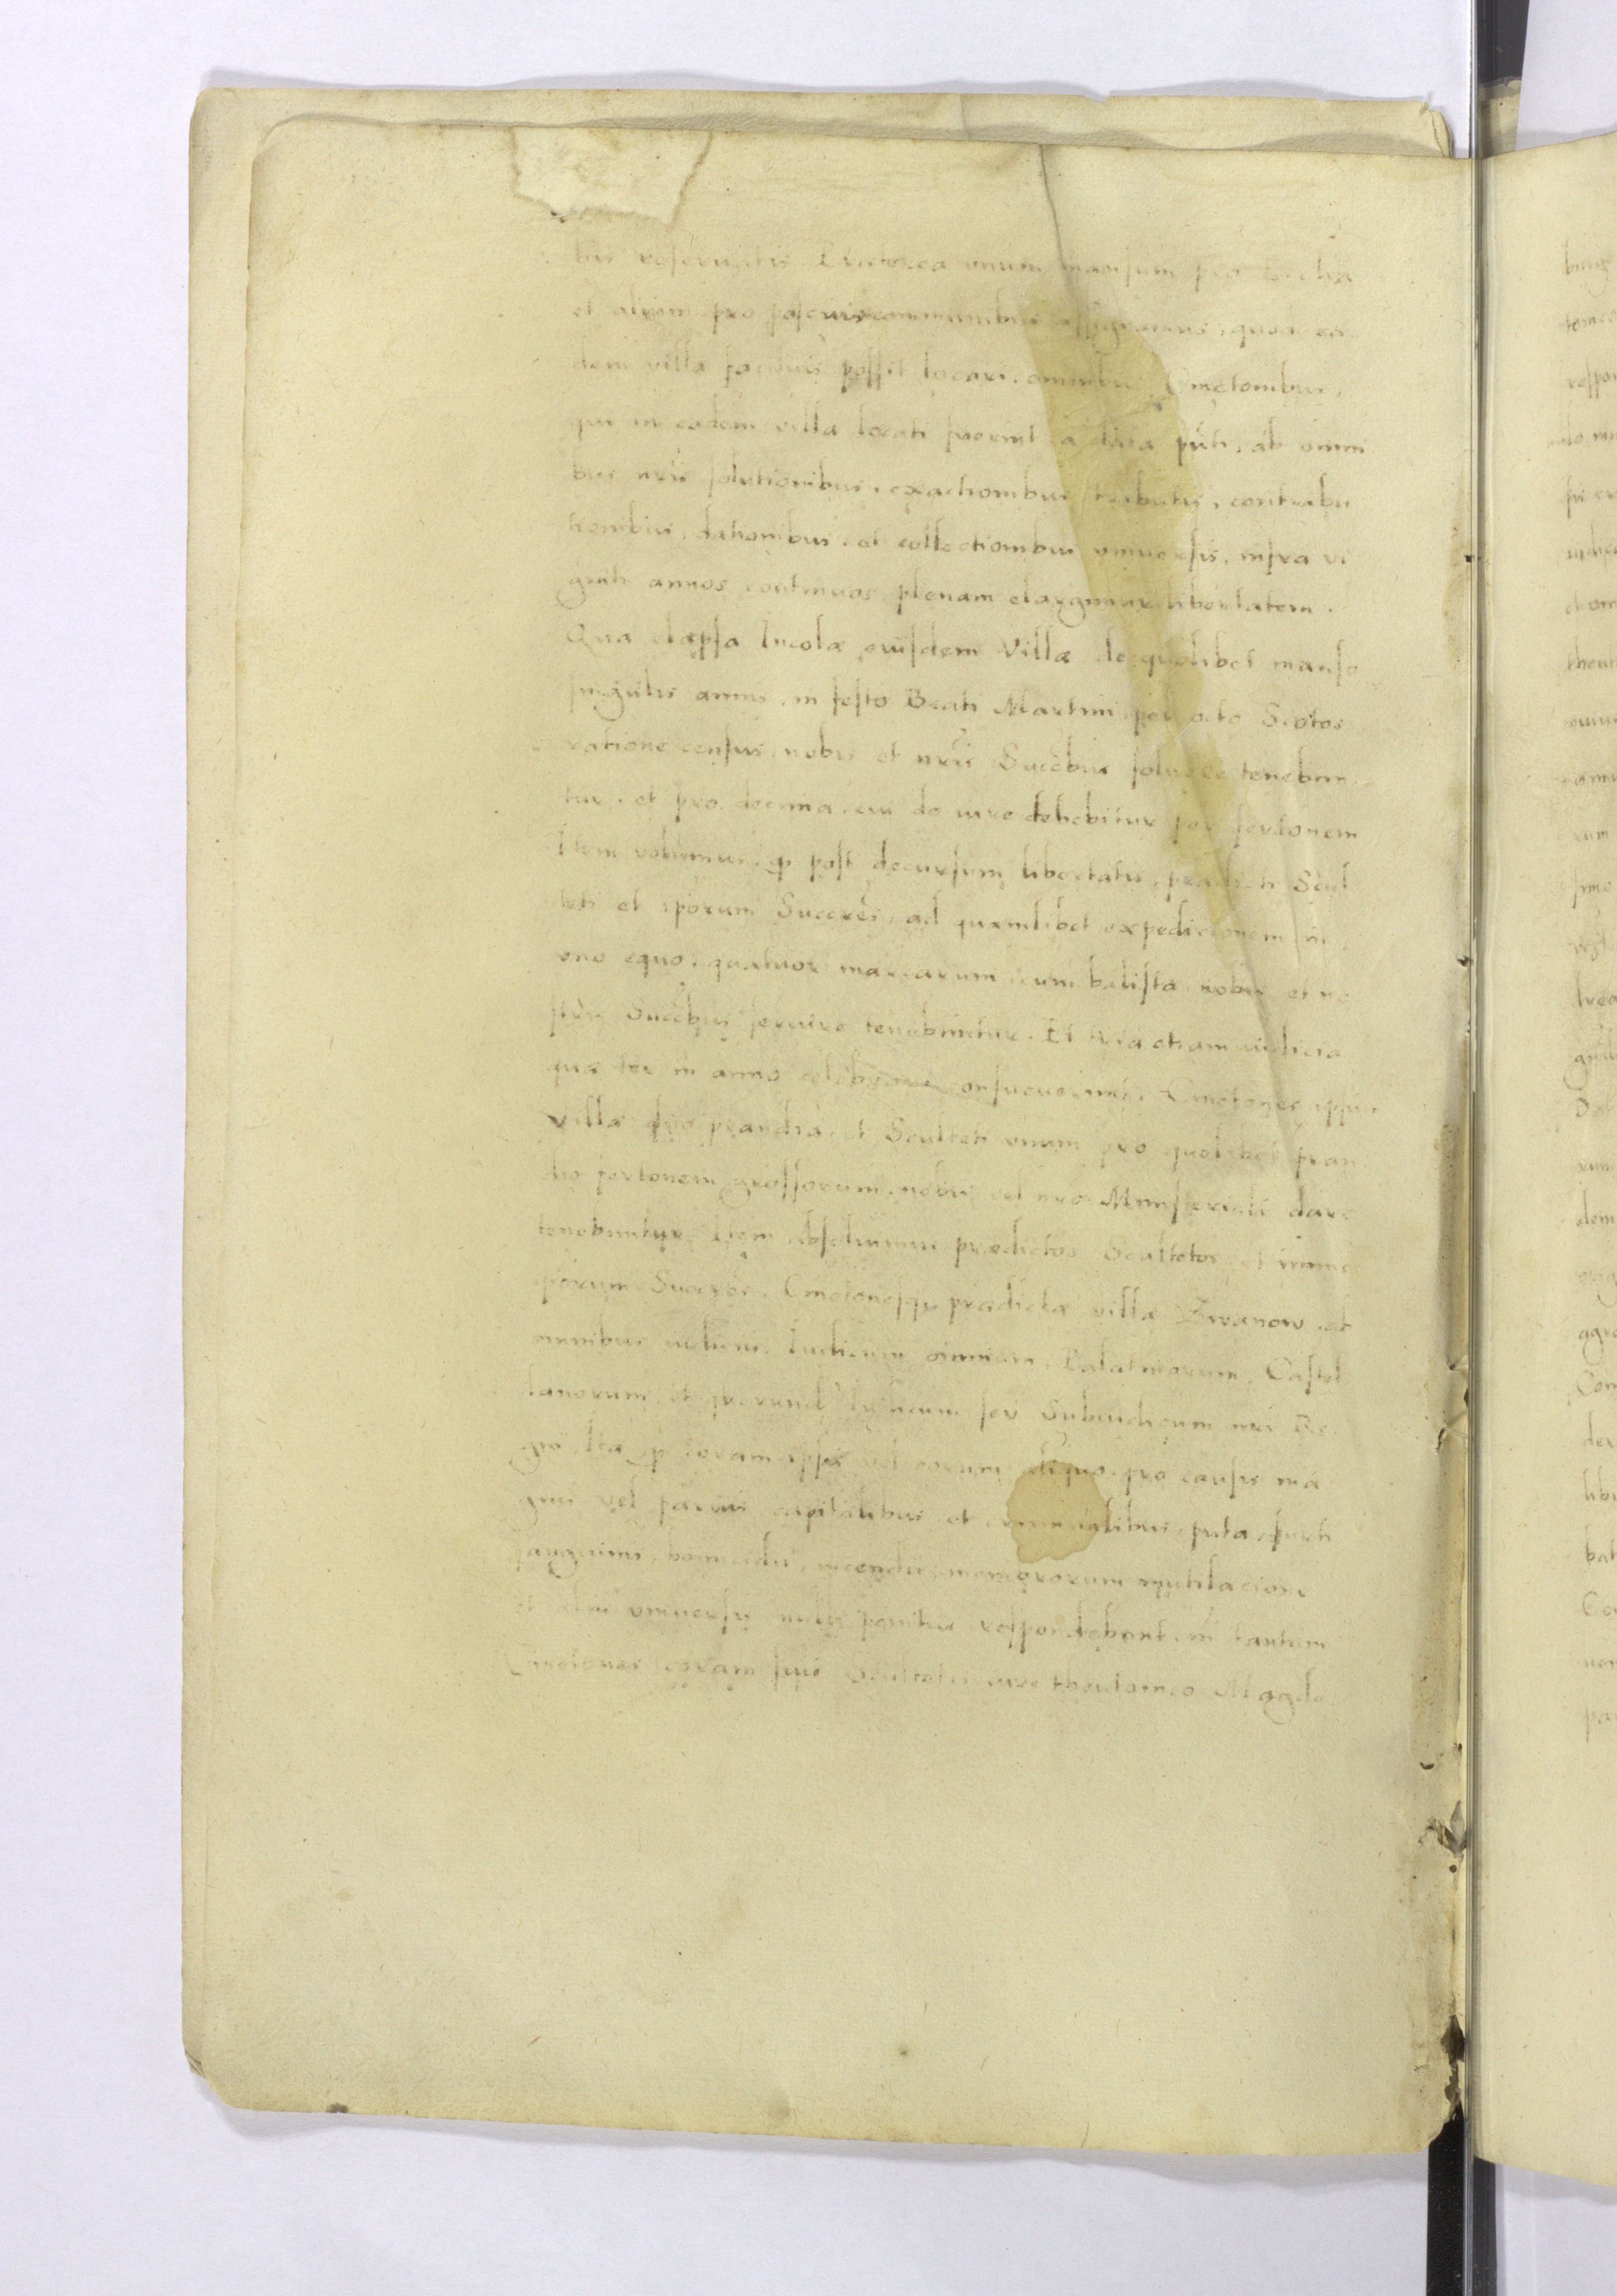 bus reservatis. Praeterea unum mansum pro Ecclīa
et alium pro pascuis communibus assignamus, quod ea
dem villa facilius possit locari. omnibus Cmetonibus,
qui in eadem villa locati fuerint a data pn̄ti, ab omni
bus nr̄is solutionibus, exactionibus tributis, contribu
tionibus, dationibus, et collectionibus universis, infra vi
ginti annos continuos, plenam elargimur libertatem.
Qua elapsa Incolæ eiusdem Villæ de quolibet manso
singulis annis, in festo Beati Martini per octo Scotos
ratione census, nobis et nr̄is Succ̄bus solvere tenebun
tur, et pro decima, cui de iure debebitur per fertonem
Item volumus, q̄ post decursum libertatis, prædicti Scul
teti et ip̄orum Succ̄res, ad quamlibet expeditionem in
uno equo, quatuor marcarum cum balista nobis et no
stris Succ̄bus servire tenebuntur. Et tria etiam iudicia
quæ ter in anno celebrare consueverint, Cmetones ipsius
Villæ duo prandia, et Sculteti unum pro quolibet pran
dio fertonem grossorum, nobis vel nr̄o Ministeriali dare
tenebuntur. Item absoluimus prædictos Scultetos et
ip̄orum Succ̄res, Cmetonesque prædictæ villæ Zwanow, ab
omnibus iudiciis, Iudicum omnium, Palatinorum, Castel
lanorum, et quorumvis Iudicum seu Subiudicum nr̄i Re
gni Ita q̄ coram ipsis vel eorum aliquo, pro causis ma
gnis vel parvis capitalibus et criminalibus, puta, furti
sanguinis, homicidii, incendii, membrorum mutilacione
et aliis universis nulli penitus respondebunt, nisi tantum
Cmetones coram suis Scultetis iure theutonico Magde